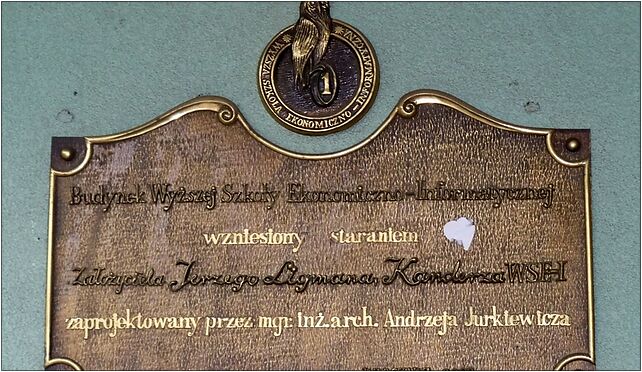 WYŻSZA SZKOŁA EKONOMICZNO-INFORMATYCZNA
Budynek Wyższej Szkoły Ekonomiczno-Informatycznej
wzniesiony staraniem
Założyciela Jerzego Ligmana, Kanclerza WSE-I
zaprojektowany przez mgr. inż. arch. Andrzeja Jurkiewicza